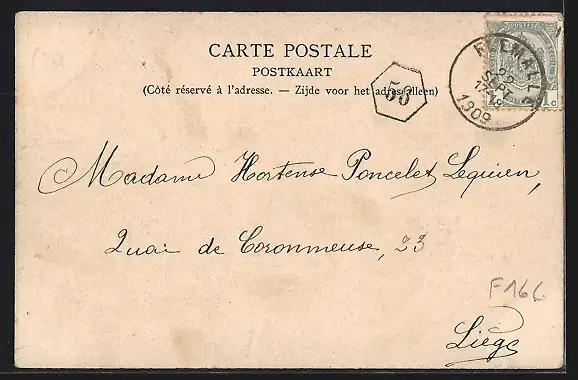 CARTE POSTALE
POSTKAART
(Côté réservé à l'adresse. — Zijde voor het adres alleen)
55
22
SEPT
1909
Madame Hortense Poncelet Lequien,
Quai de Coronmeuse, 23
F16
Liége